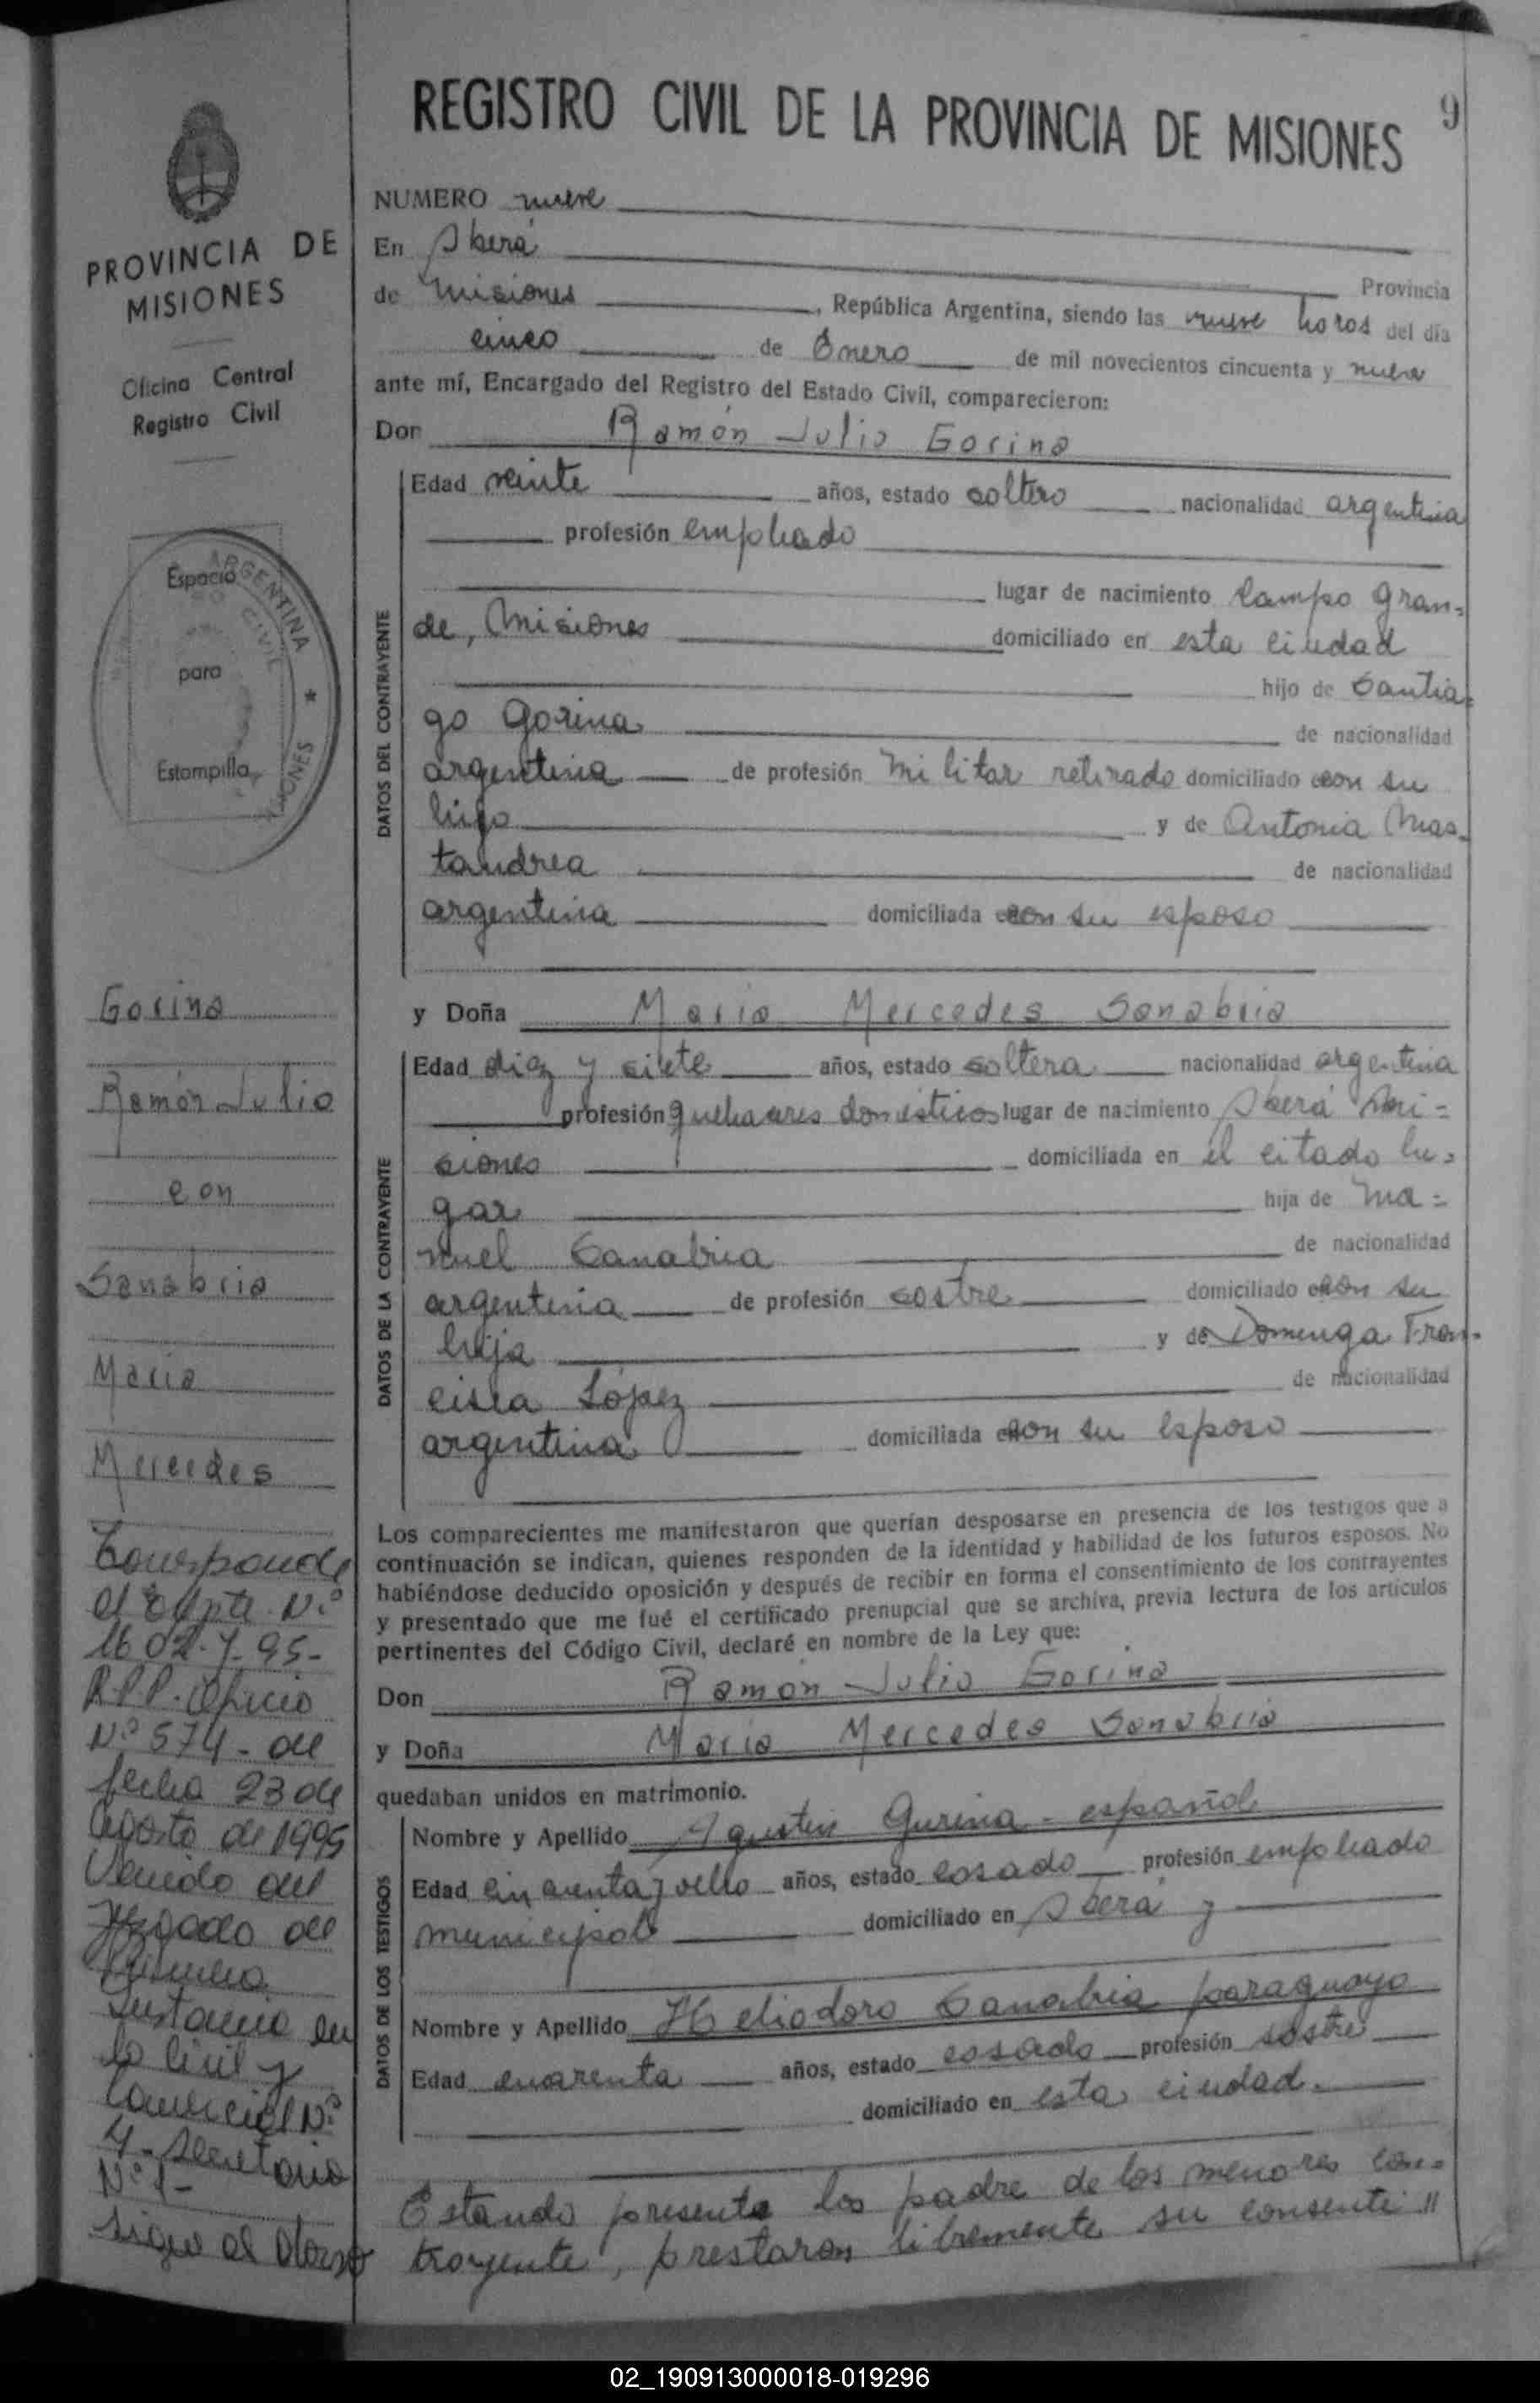 REGISTRO CIVIL DE LA PROVINCIA DE MISIONES
9
NUMERO nueve
En Oberá
Provincia
de Misiones, República Argentina, siendo las nueve horas del día
cinco de Enero de mil novecientos cincuenta y nueve
ante mí, Encargado del Registro del Estado Civil, comparecieron:
Don Ramón Julio Gorina
DATOS DEL CONTRAYENTE
Edad veinte años, estado soltero nacionalidad argentina
profesión empleado
lugar de nacimiento Campo Gran=
de, Misiones domiciliado en esta ciudad
hijo de Santia=
go Gorina de nacionalidad
argentina de profesión Militar retirado domiciliado con su
hijo y de Antonia Mas=
tandrea de nacionalidad
argentina domiciliada con su esposo
y Doña Maria Mercedes Sanabria
DATOS DE LA CONTRAYENTE
Edad diez y siete años, estado soltera nacionalidad argentina
profesión quehaceres domésticos lugar de nacimiento Oberá Mi=
siones domiciliada en el citado lu=
gar hija de Ma=
nuel Sanabria de nacionalidad
argentina de profesión sastre domiciliado con su
hija y de Dominga Fran=
cisca López de nacionalidad
argentina domiciliada con su esposo
Los comparecientes me manifestaron que querían desposarse en presencia de los testigos que a
continuación se indican, quienes responden de la identidad y habilidad de los futuros esposos. No
habiéndose deducido oposición y después de recibir en forma el consentimiento de los contrayentes
y presentado que me fué el certificado prenupcial que se archiva, previa lectura de los artículos
pertinentes del Código Civil, declaré en nombre de la Ley que:
Don Ramón Julio Gorina
y Doña Maria Mercedes Sanabria
quedaban unidos en matrimonio.
DATOS DE LOS TESTIGOS
Nombre y Apellido Agustin Gurina - español
Edad cincuenta y ocho años, estado casado profesión empleado
municipal domiciliado en Oberá y
Nombre y Apellido Heliodoro Sanabria paraguayo
Edad cuarenta años, estado casado profesión sastre
domiciliado en esta ciudad.
Estando presente los padre de los menores con=
trayente, prestaron libremente su consenti"
PROVINCIA DE
MISIONES
Oficina Central
Registro Civil
Espacio
para
Estampilla
ARGENTINA
MISIONES
Gorina
Ramón Julio
con
Sanabria
Maria
Mercedes
Corresponde
al Expte. Nº
1602-7-95-
R.P.P. Oficio
Nº 574- de
fecha 23 de
Agosto de 1995
Venido del
Juzgado de
Primera
Instancia en
lo Civil y
Comercial Nº
4- Secretaria
Nº 1-
sigue al dorso
02_190913000018-019296